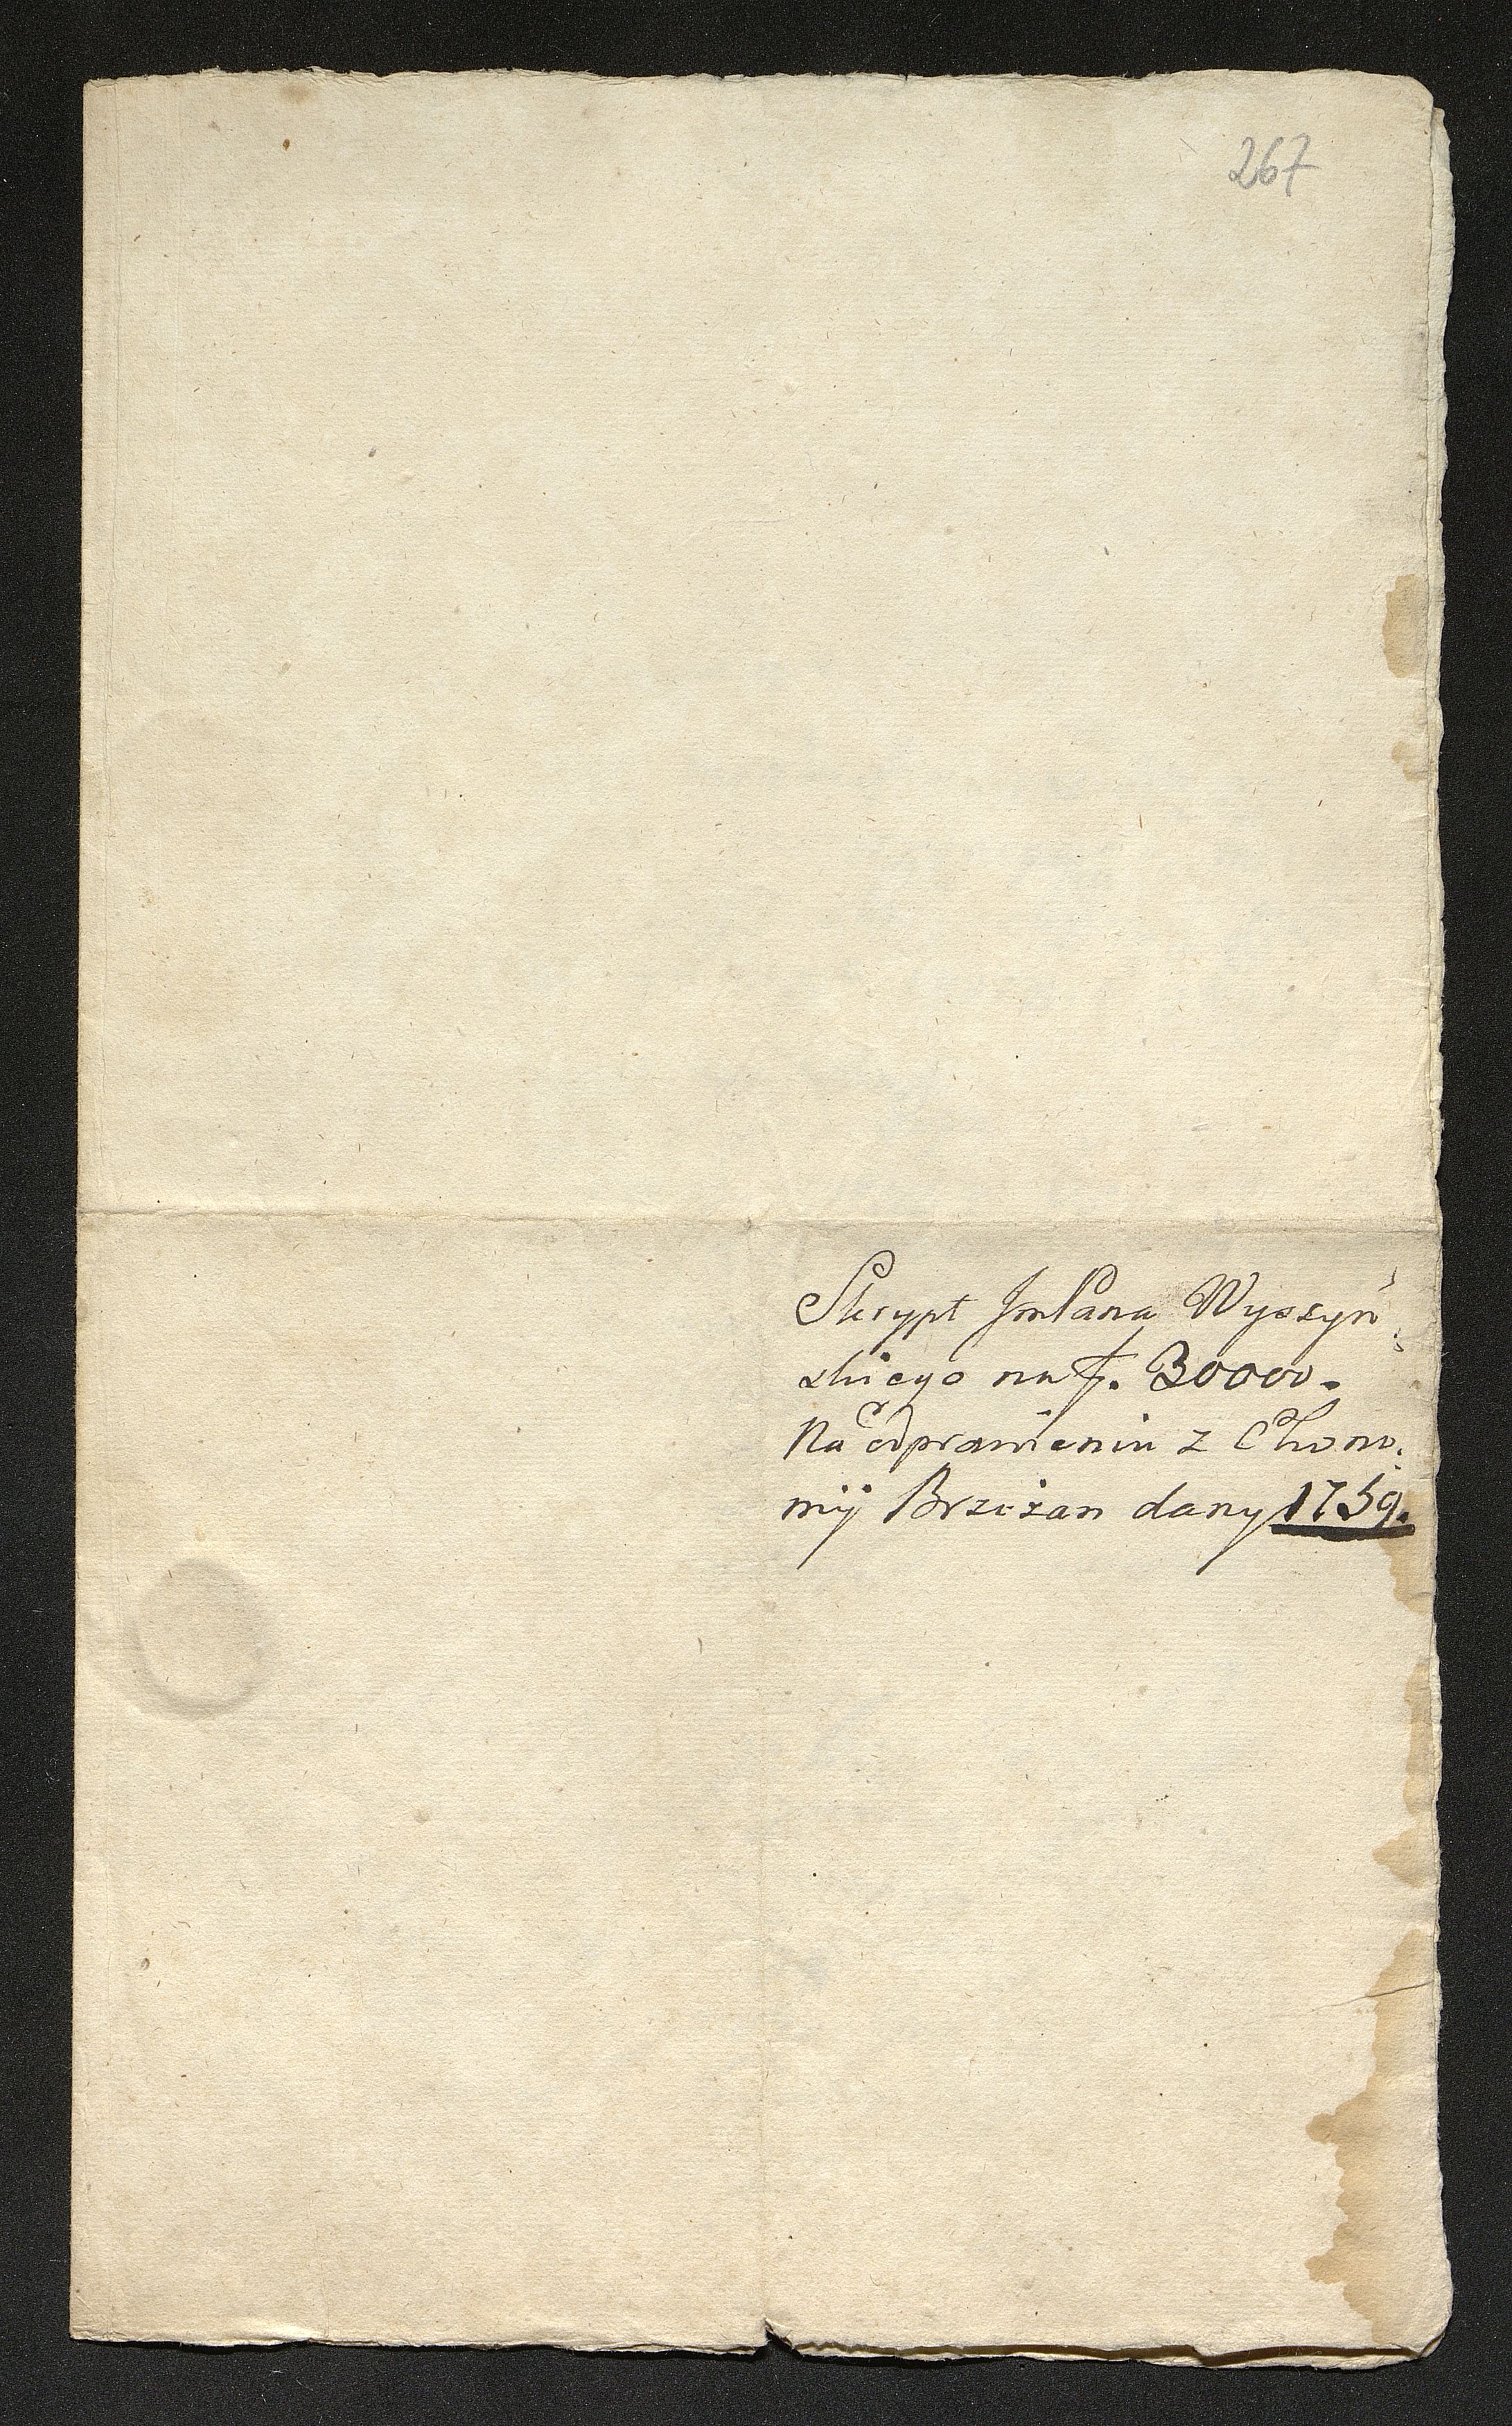 267
Skrypt JmPana Wyszyń:
skiego na f. 30000.
Na odprawieniu z Ekono:
mij Brzeżan dany 1759.